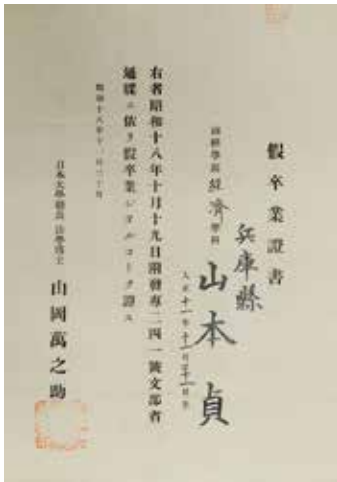 假卒業證書
兵庫縣
山本貞
大正十一年十一月三十一日生
商經學部 經濟 學科
右者昭和十八年十月十九日附發專二四一號文部省
通牒ニ依リ假卒業シタルコトヲ證ス
昭和十八年十一月三十日
日本大學總長 法學博士 山岡萬之助